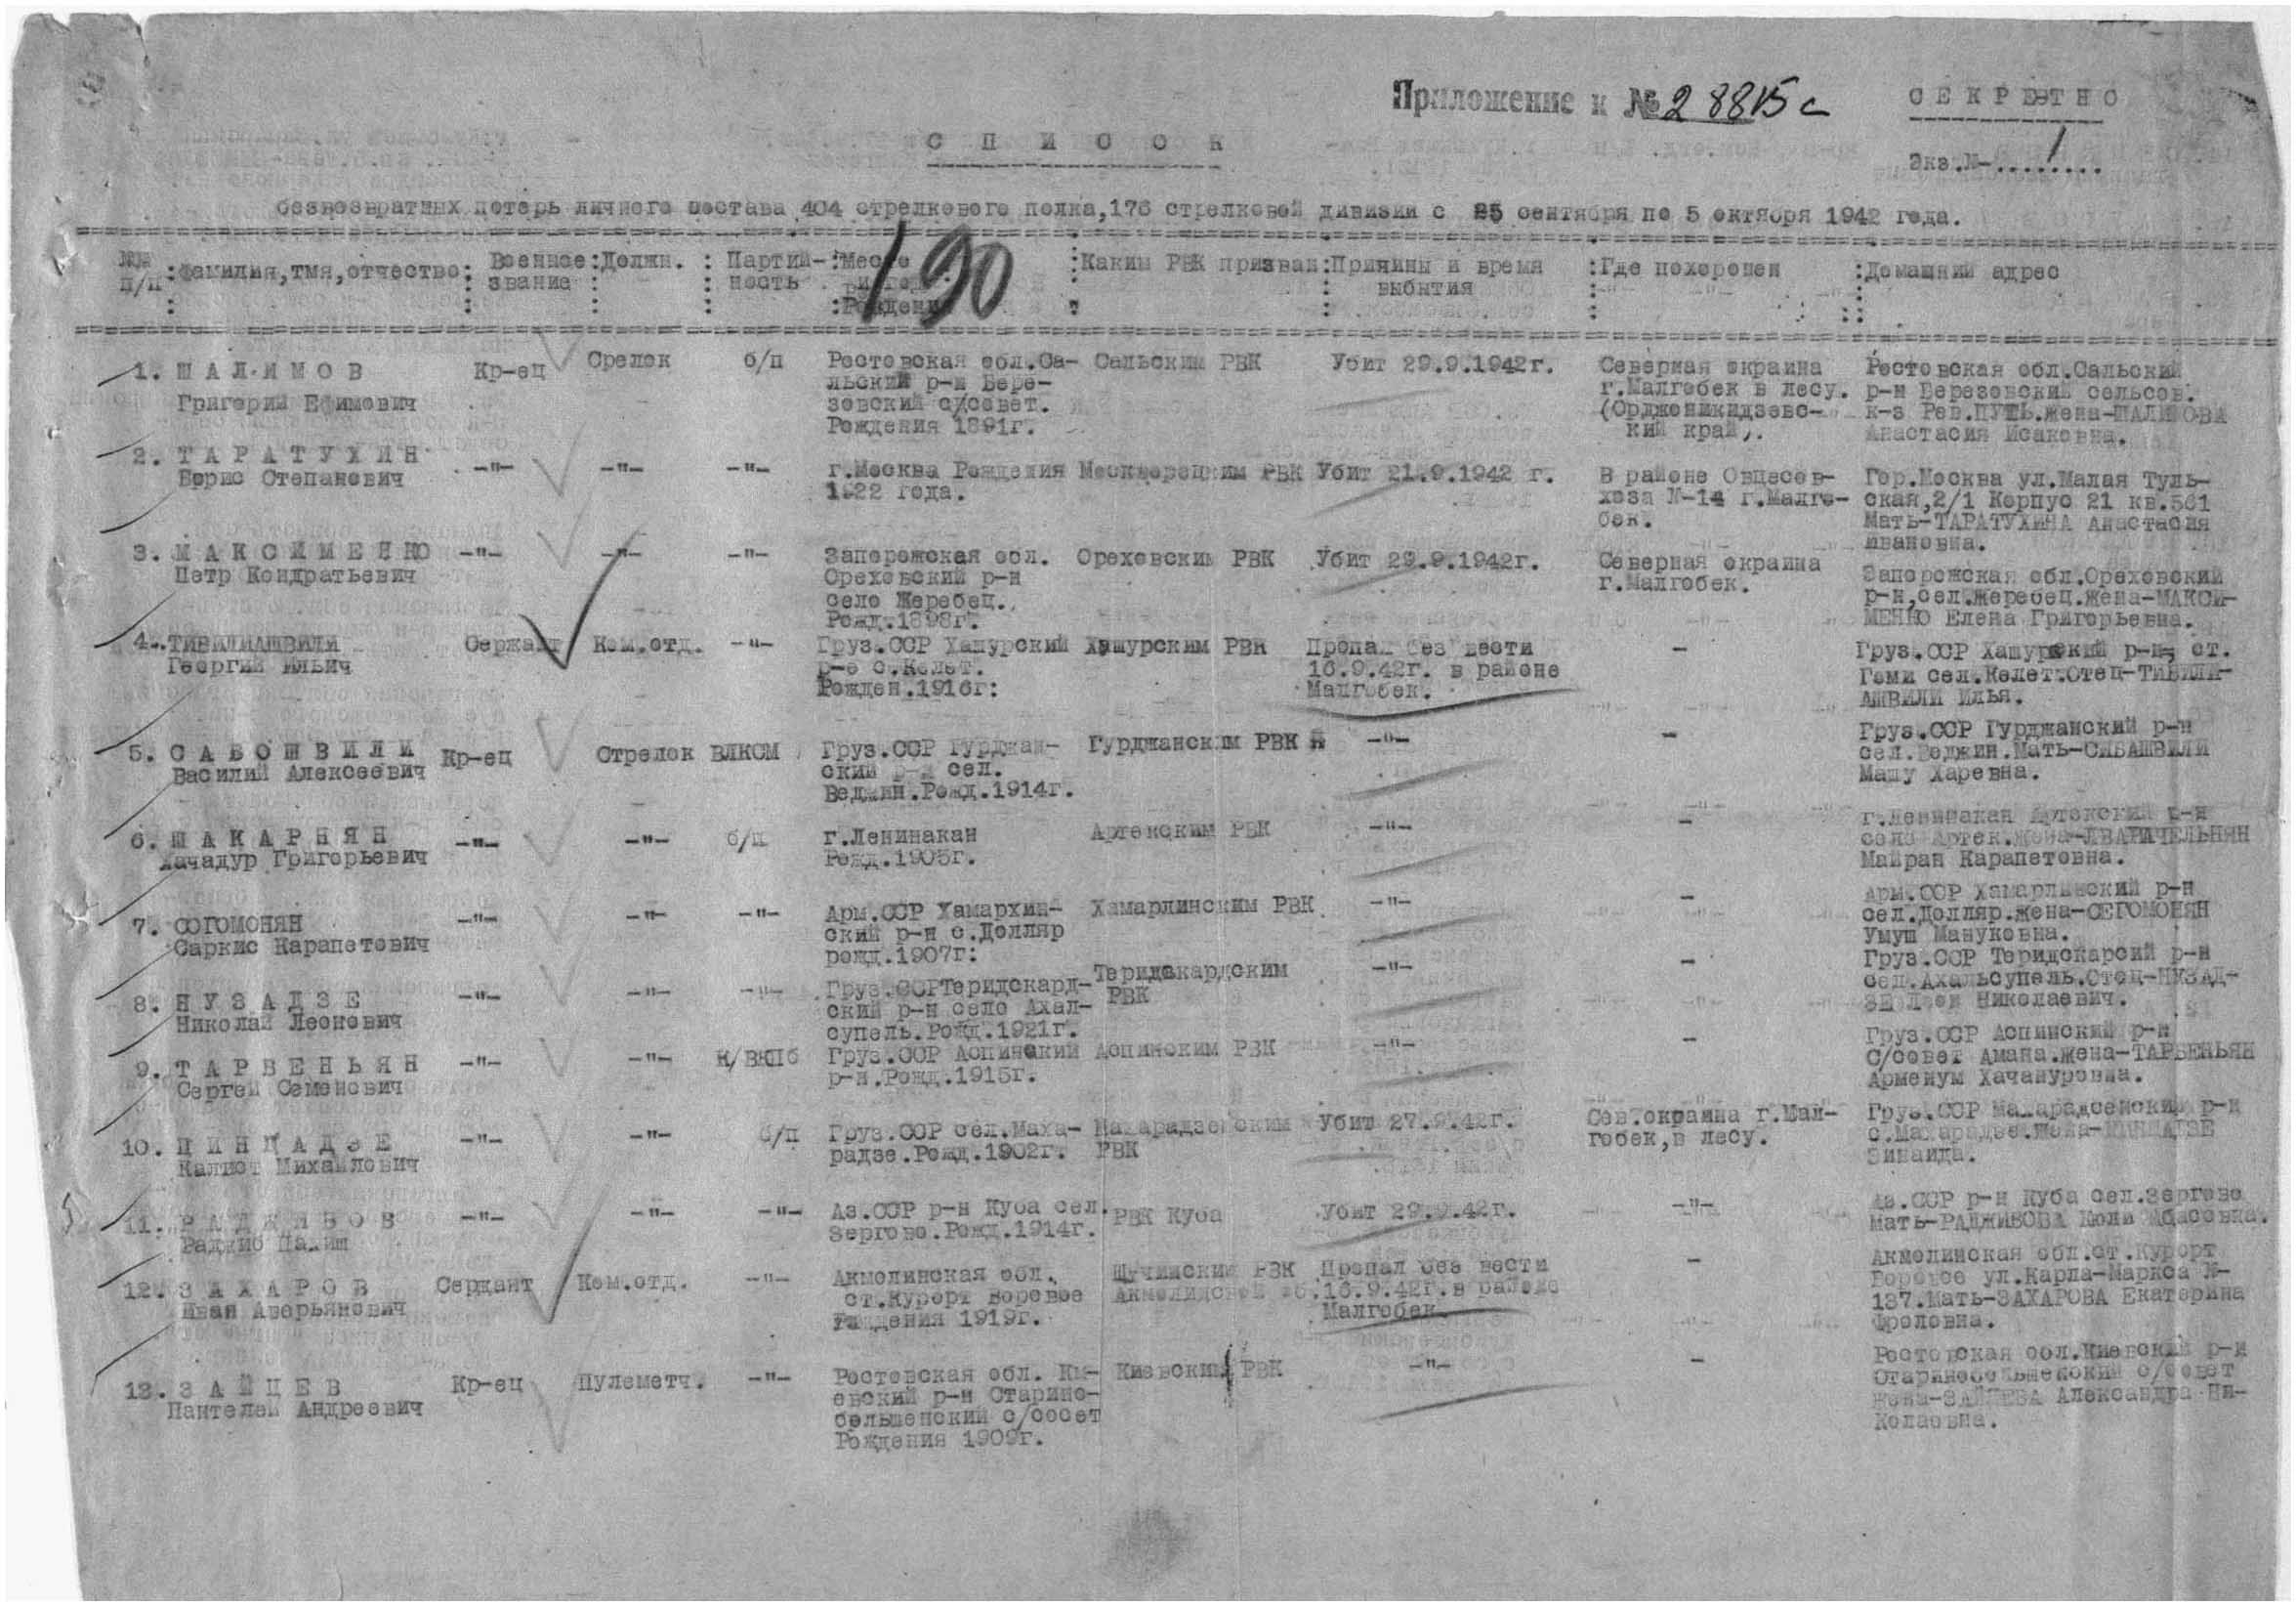 Приложение к № 28815с
СЕКРЕТНО
СПИСОК
Экз.№-........ 1
безвозвратных потерь личного состава 404 стрелкового полка,176 стрелковой дивизии с 25 сентября по 5 октября 1942 года.
190
№№ п/п :Фамилия,тмя,отчество: Военное звание :Должн. : Партий-ность :Место и год Рождения :Каким РВК призван:Причины и время выбытия :Где похоронен :Домашний адрес
1. ШАЛИМОВ Кр-ец Срелок б/п Ростовская обл.Са- Сальским РВК Убит 29.9.1942г. Северная окраина Ростовская обл.Сальский
Григорий Ефимович льский р-н Бере- г.Малгобек в лесу. р-н Березовский сельсов.
зовский с/совет. (Орджоникидзевс- к-з Рев.ПУТЬ.жена-ШАЛИМОВА
Рождения 1891г. кий край). Анастасия Исаковна.
2. ТАРАТУХИН -"- -"- -"- г.Москва Рождения Москворецким РВК Убит 21.9.1942 г. В районе Овцесов- Гор.Москва ул.Малая Туль-
Борис Степанович 1922 года. хоза №-14 г.Малго- ская,2/1 Корпус 21 кв.561
бек. Мать-ТАРАТУХИНА Анастасия
Ивановна.
3. МАКСИМЕНКО -"- -"- -"- Запорожская обл. Ореховским РВК Убит 29.9.1942г. Северная окраина
Петр Кондратьевич Ореховский р-н г.Малгобек. Запорожская обл.Ореховский
село Жеребец. р-н,сел.Жеребец.жена-МАКСИ-
Рожд.1898г. МЕНКО Елена Григорьевна.
4. ТИВИЛИАШВИЛИ Сержант Ком.отд. -"- Груз.ССР Хашурский Хашурским РВК Пропал без вести - Груз.ССР Хашурский р-н, ст.
Георгий Ильич р-е с.Келет. 16.9.42г. в районе Гоми сел.Келет.Отец-ТИВИЛИ-
Рожден.1916г: Малгобек. АШВИЛИ Илья.
5. САБОШВИЛИ Кр-ец Стрелок ВЛКСМ Груз.ССР Гурджан- Гурджанским РВК -"- - Груз.ССР Гурджанский р-н
Василий Алексеевич ский р-н сел. сел.Веджин.Мать-СИБАШВИЛИ
Веджин.Рожд.1914г. Машу Харевна.
6. ШАКАРНЯН -"- -"- б/п г.Ленинакан Артекским РВК -"- - г.Ленинакан Артекский р-н
Хачадур Григорьевич Рожд.1905г. село Артек.жена-
Майран Карапетовна.
7. СОГОМОНЯН -"- -"- -"- Арм.ССР Хамархин- Хамарлинским РВК -"- - Арм.ССР Хамарлинский р-н
Саркис Карапетович ский р-н с.Долляр сел.Долляр.жена-СЕГОМОНЯН
рожд.1907г: Умуш Мануковна.
8. НУЗАДЗЕ -"- -"- -"- Груз.ССРТеридскард- Теридскардским -"- - Груз.ССР Теридскарсий р-н
Николай Леонович ский р-н село Ахал- РВК сел.Ахальсупель.Отец-НУЗАД-
супель.Рожд.1921г. ЗЕ Леон Николаевич.
9. ТАРВЕНЬЯН -"- -"- К/ВКПб Груз.ССР Аспинский Аспинским РВК -"- - Груз.ССР Аспинский р-н
Сергей Семенович р-н.Рожд.1915г. С/совет Амана.жена-ТАРВЕНЬЯН
Арменум Хачануровна.
10. ЦИНЦАДЗЕ -"- -"- б/п Груз.ССР сел.Маха- Махарадзевским Убит 27.9.42г. Сев.окраина г.Мал- Груз.ССР Махарадсевский р-н
Калист Михайлович радзе.Рожд.1902г. РВК гобек,в лесу. с.Махарадзе.Жена-ЦИНЦАДЗЕ
Зинаида.
11. РАДЖИБОВ -"- -"- -"- Аз.ССР р-н Куба сел. РВК Куба Убит 29.9.42г. -"- Аз.ССР р-н Куба сел.Зергово
Раджиб Зергово.Рожд.1914г. Мать-РАДЖИБОВА
12. ЗАХАРОВ Сержант Ком.отд. -"- Акмолинская обл. Щучинский РВК Пропал без вести - Акмолинская обл.ст.Курорт
Иван Аверьянович ст.Курорт Боровое Акмолидской об.16.9.42г.в районе Боровое ул.Карла-Маркса №-
Рождения 1919г. Малгобек 137.Мать-ЗАХАРОВА Екатерина
Фроловна.
13. ЗАЙЦЕВ Кр-ец Пулеметч. -"- Ростовская обл. Ки- Киевским РВК -"- - Ростовская обл.Киевский р-н
Пантелей Андреевич евский р-н Старино- с/совет
бельшенский с/сосет жена-ЗАЙЦЕВА Александра Ни-
Рождения 1909г. колаовна.